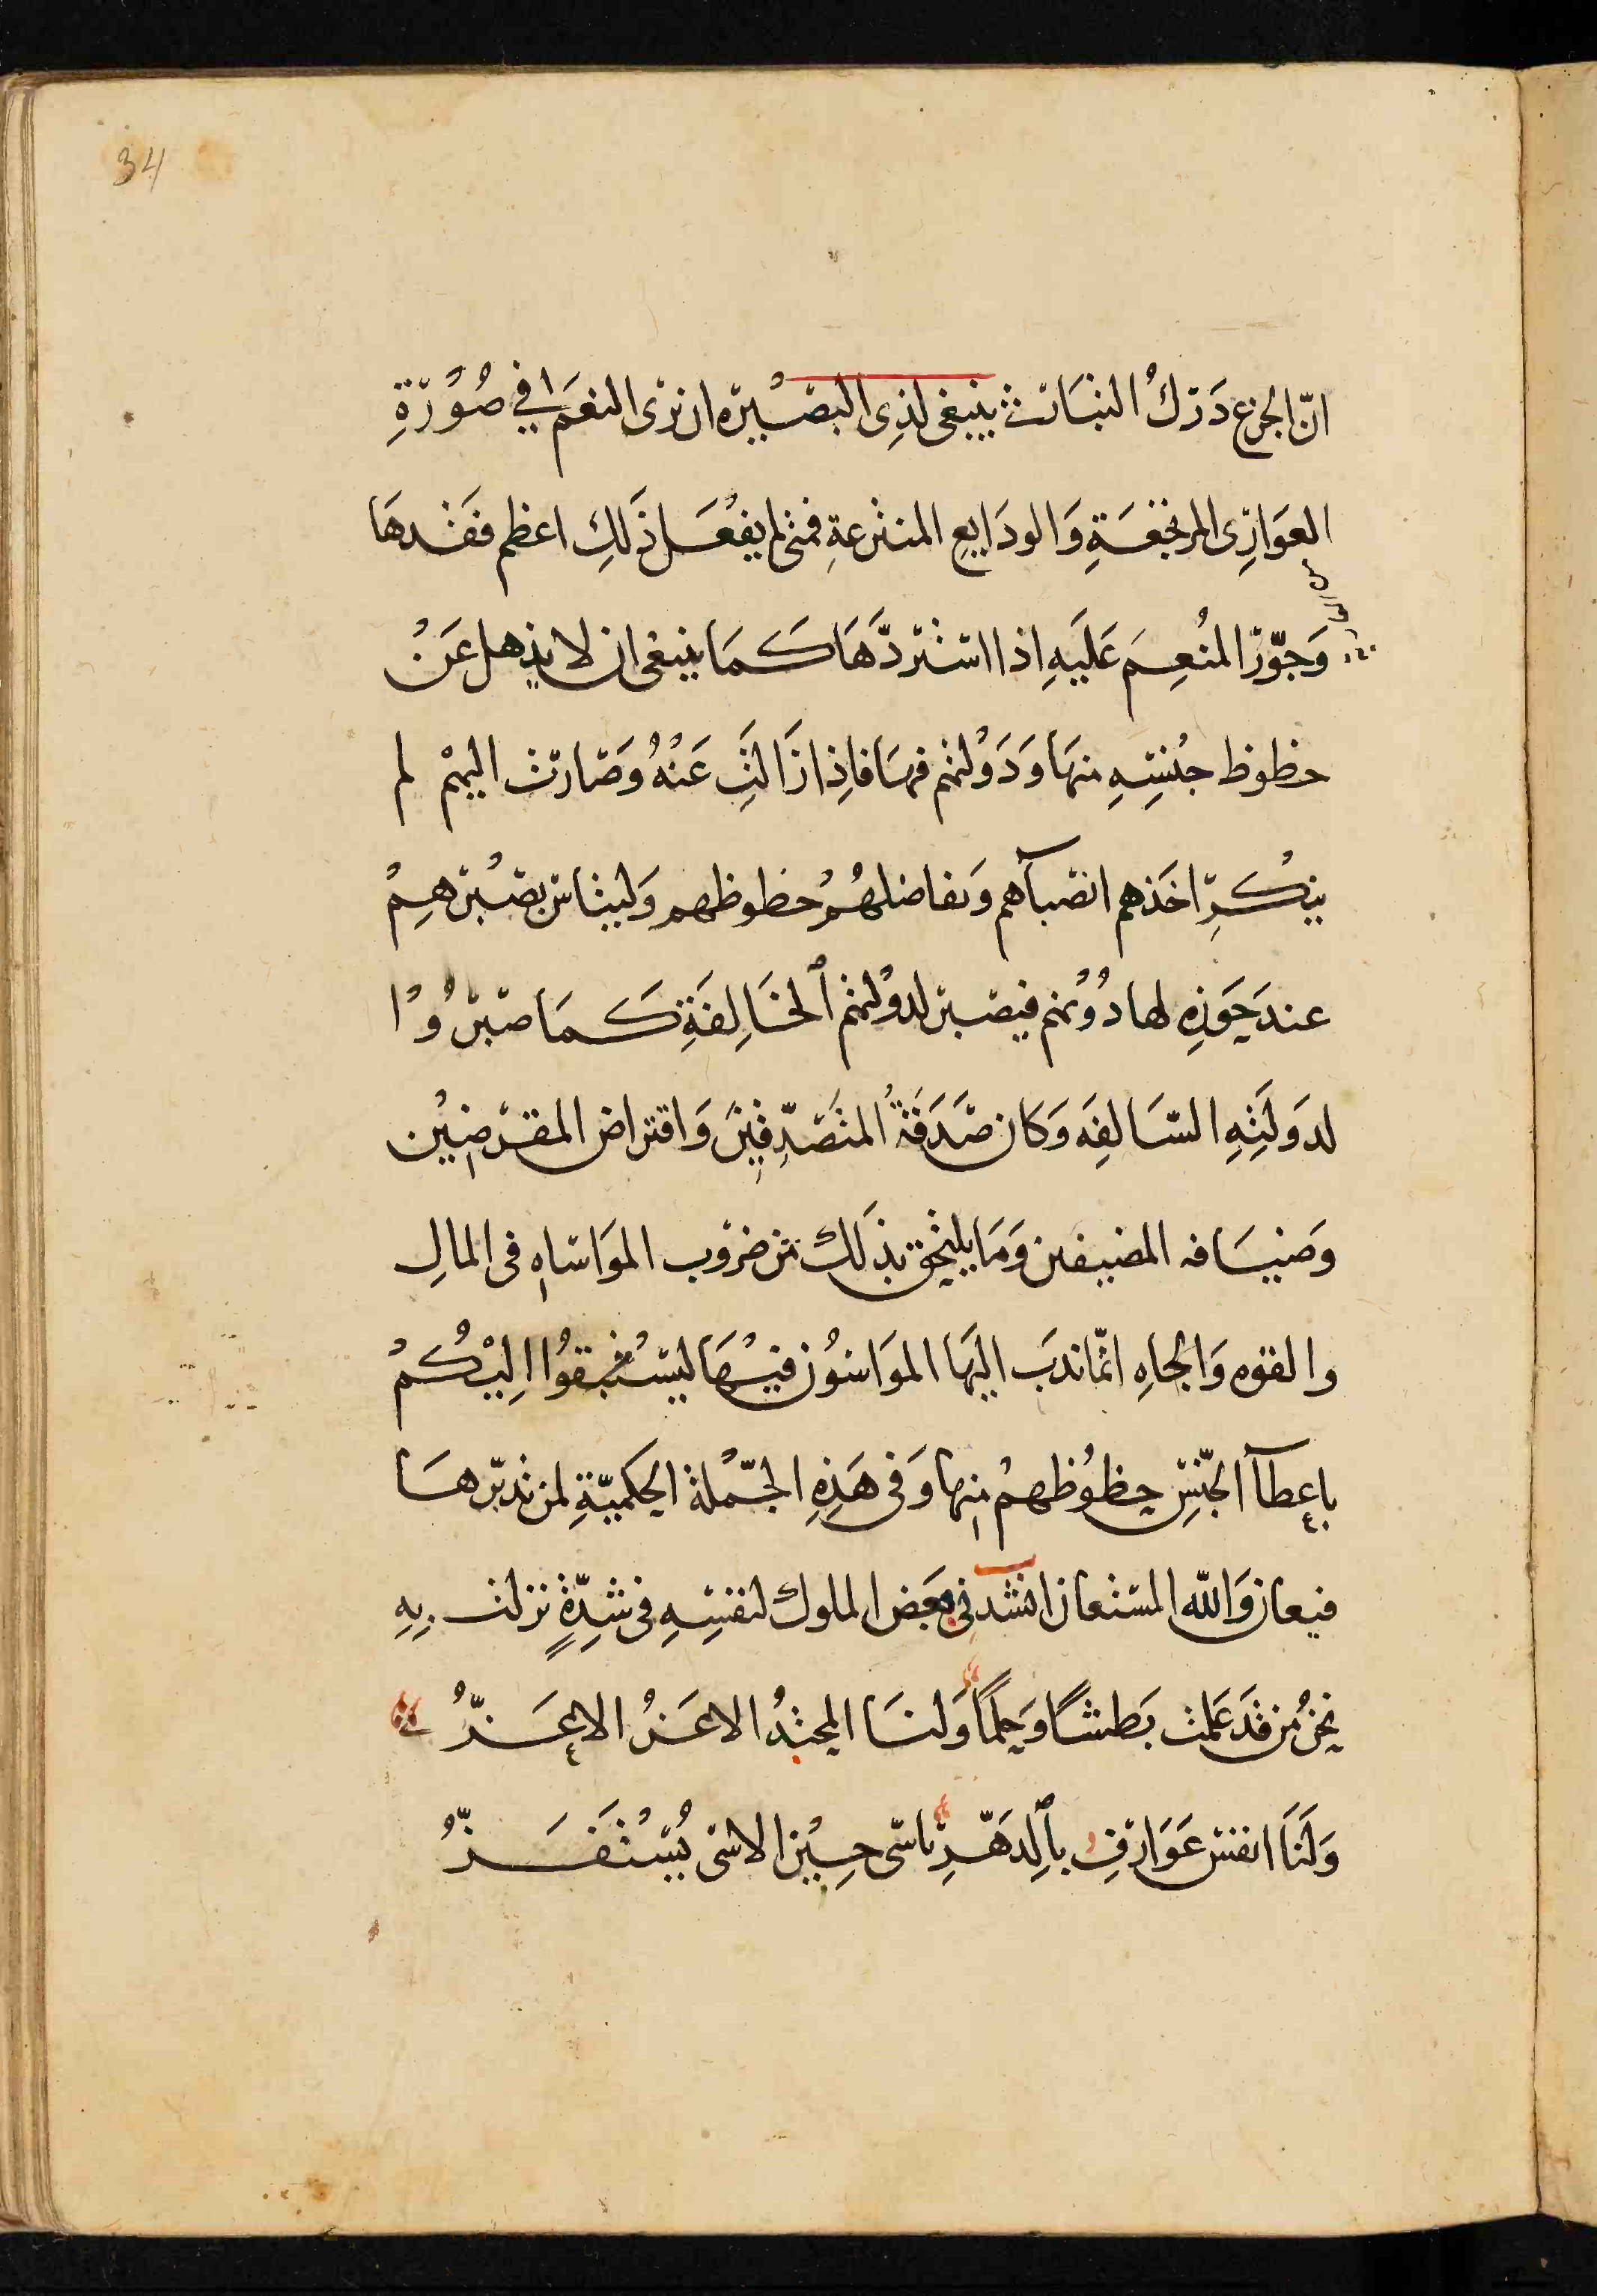 34
انّ الجزع دَرَكُ النبَات ينبغى لذِى البصِيْرَه ان يرَى النعَم في صُوْرَةِ
العَوَارِى المرتجعَةِ وَالودَايع المنتزعةِ فمتى لم يفْعَل ذَلكِ اعظم فقدهَا
وَجوّرَ المنُعِمَ عَلَيهِ اذا استردّهَا كَمَا ينبغى ان لا يذهل عَنْ
حظوظ جنْسِهِ منهَا وَدَوْلتهم فيهَا فاذِا زَالَتِ عَنْهُ وَصَارَت اليهمْ لم
ينْكرِ اخَذهم انصبآهم وَتفاضلهُمْ حظوظهم وَليتاس بصَبْرِهِمْ
عند حَوَزِهِ لها دُوْنهم فيصبر لدوْلتهم ٱلخَالِفَةِ كَمَا صَبرُوْا
لدوَلَتِهِ السَّالفِه وَكان صَدَقَةُ المتَصَدِّقِينَ وَاقتراض المقرضِيْن
وَضيَافه المضيفين وَمَا يلتحَق بذَلك من ضرُوب المَوَاسَاهِ فى المالِ
والقوه وَالجاهِ انمّا ندبَ اليهَا المَوَاسُوْن فيْهَا ليسْتبقوُا اليْكُمْ
باعِطآ الجنْسِ حظوُظهمُ مِنها وَفى هَذِهِ الجُمْلة الحِكميّةِ لمن تدبّرهَا
فيعان وَالله المسْتعان انشدنى بعَض الملوك لنفسِهِ فى شدِّةٍ نزلت بهِ
نحَنُ من قدَ عَلمت بَطشًا وَحِلمًا وَلنَا المحتِدُ الاعَزُ الاعَزُّ
وَلَنَا انفس عَوَارَفِ بٱلِدهَّرِ تاسى حِيْن الاسَى يُسْتفَزُّ